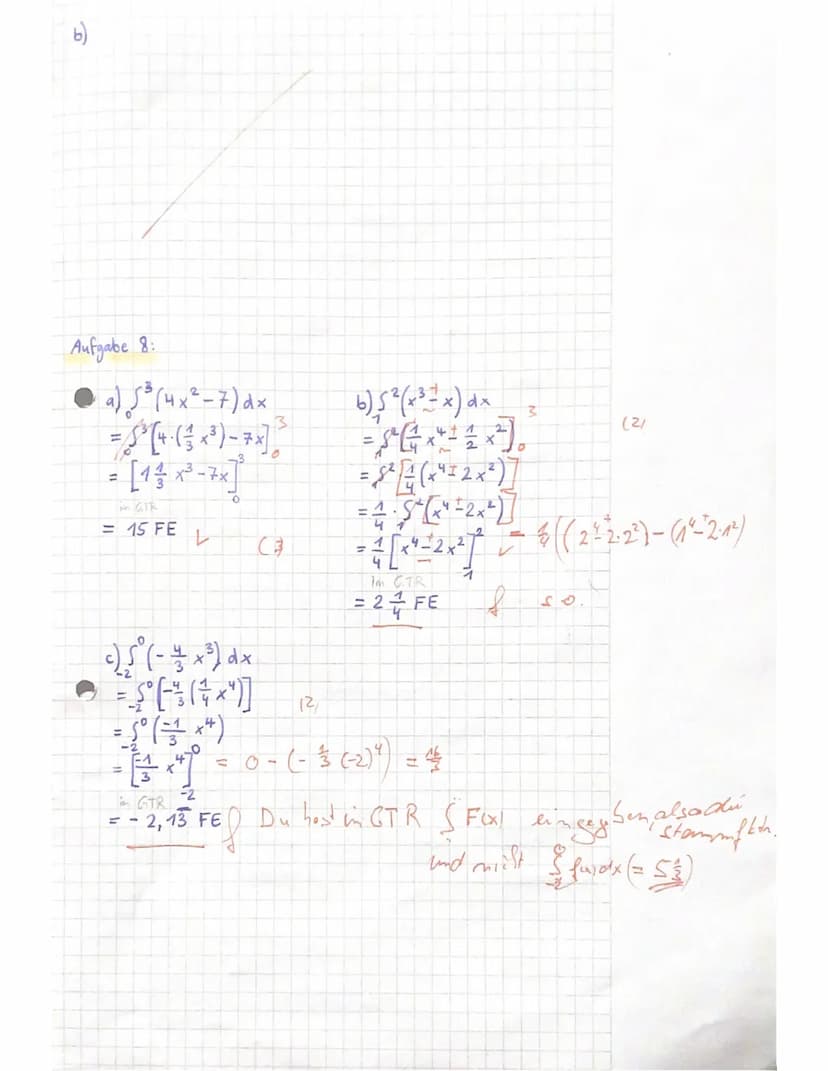 b)
Aufgabe 8:
a) ₀∫³ (4x² - 7) dx
= ₀∫³ [4·(1/3 x³) - 7x]₀³
= [1 1/3 x³ - 7x]₀³
in GTR
= 15 FE
b) ₁∫² (x³ - x) dx
(2)
= ₁∫² [1/4 x⁴ - 1/2 x²]
= ₁∫² [1/4 (x⁴ - 2x²)]
= 1/4 · ₁∫² (x⁴ - 2x²)
= 1/4 [x⁴ - 2x²]₁² = 1/4 ((2⁴ - 2·2²) - (1⁴ - 2·1²)
Im GTR
= 2 1/4 FE f s o.
c) ₋₂∫⁰ (- 4/3 x³) dx
= ₋₂∫⁰ [-4/3 (1/4 x⁴)]
(2)
= ₋₂∫⁰ (-1/3 x⁴)
= [-1/3 x⁴]₋₂⁰ = 0 - (- 1/3 (-2)⁴) = 16/3
in GTR
= - 2,13 FE f Du hast in GTR ∫ F(x) eingegeben, also die
Stammfktn.
und nicht ₋₂∫⁰ f(x) dx (= 5 1/3)